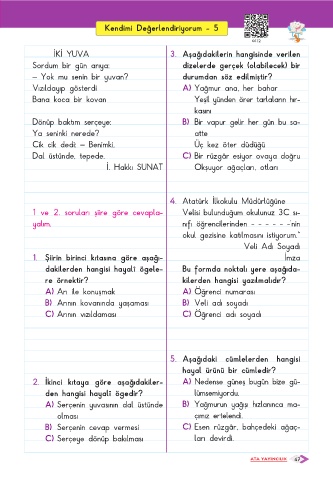 Kendimi Değerlendiriyorum - 5
İKİ YUVA
Sordum bir gün arıya:
– Yok mu senin bir yuvan?
Vızıldayıp gösterdi
Bana koca bir kovan
Dönüp baktım serçeye:
Ya seninki nerede?
Cik cik dedi: – Benimki,
Dal üstünde, tepede.
İ. Hakkı SUNAT
1 ve 2. soruları şiire göre cevapla-
yalım.
1. Şiirin birinci kıtasına göre aşağı-
dakilerden hangisi hayalî ögele-
re örnektir?
A) Arı ile konuşmak
B) Arının kovanında yaşaması
C) Arının vızıldaması
2. İkinci kıtaya göre aşağıdakiler-
den hangisi hayalî ögedir?
A) Serçenin yuvasının dal üstünde
olması
B) Serçenin cevap vermesi
C) Serçeye dönüp bakılması
3. Aşağıdakilerin hangisinde verilen
dizelerde gerçek (olabilecek) bir
durumdan söz edilmiştir?
A) Yağmur ana, her bahar
Yeşil yünden örer tarlaların hır-
kasını
B) Bir vapur gelir her gün bu sa-
atte
Üç kez öter düdüğü
C) Bir rüzgâr esiyor ovaya doğru
Okşuyor ağaçları, otları
4. Atatürk İlkokulu Müdürlüğüne
Velisi bulunduğum okulunuz 3C sı-
nıfı öğrencilerinden - - - - - -nin
okul gezisine katılmasını istiyorum."
Veli Adı Soyadı
İmza
Bu formda noktalı yere aşağıda-
kilerden hangisi yazılmalıdır?
A) Öğrenci numarası
B) Veli adı soyadı
C) Öğrenci adı soyadı
5. Aşağıdaki cümlelerden hangisi
hayal ürünü bir cümledir?
A) Nedense güneş bugün bize gü-
lümsemiyordu.
B) Yağmurun yağışı hızlanınca ma-
çımız ertelendi.
C) Esen rüzgâr, bahçedeki ağaç-
ları devirdi.
ATA YAYINCILIK
47